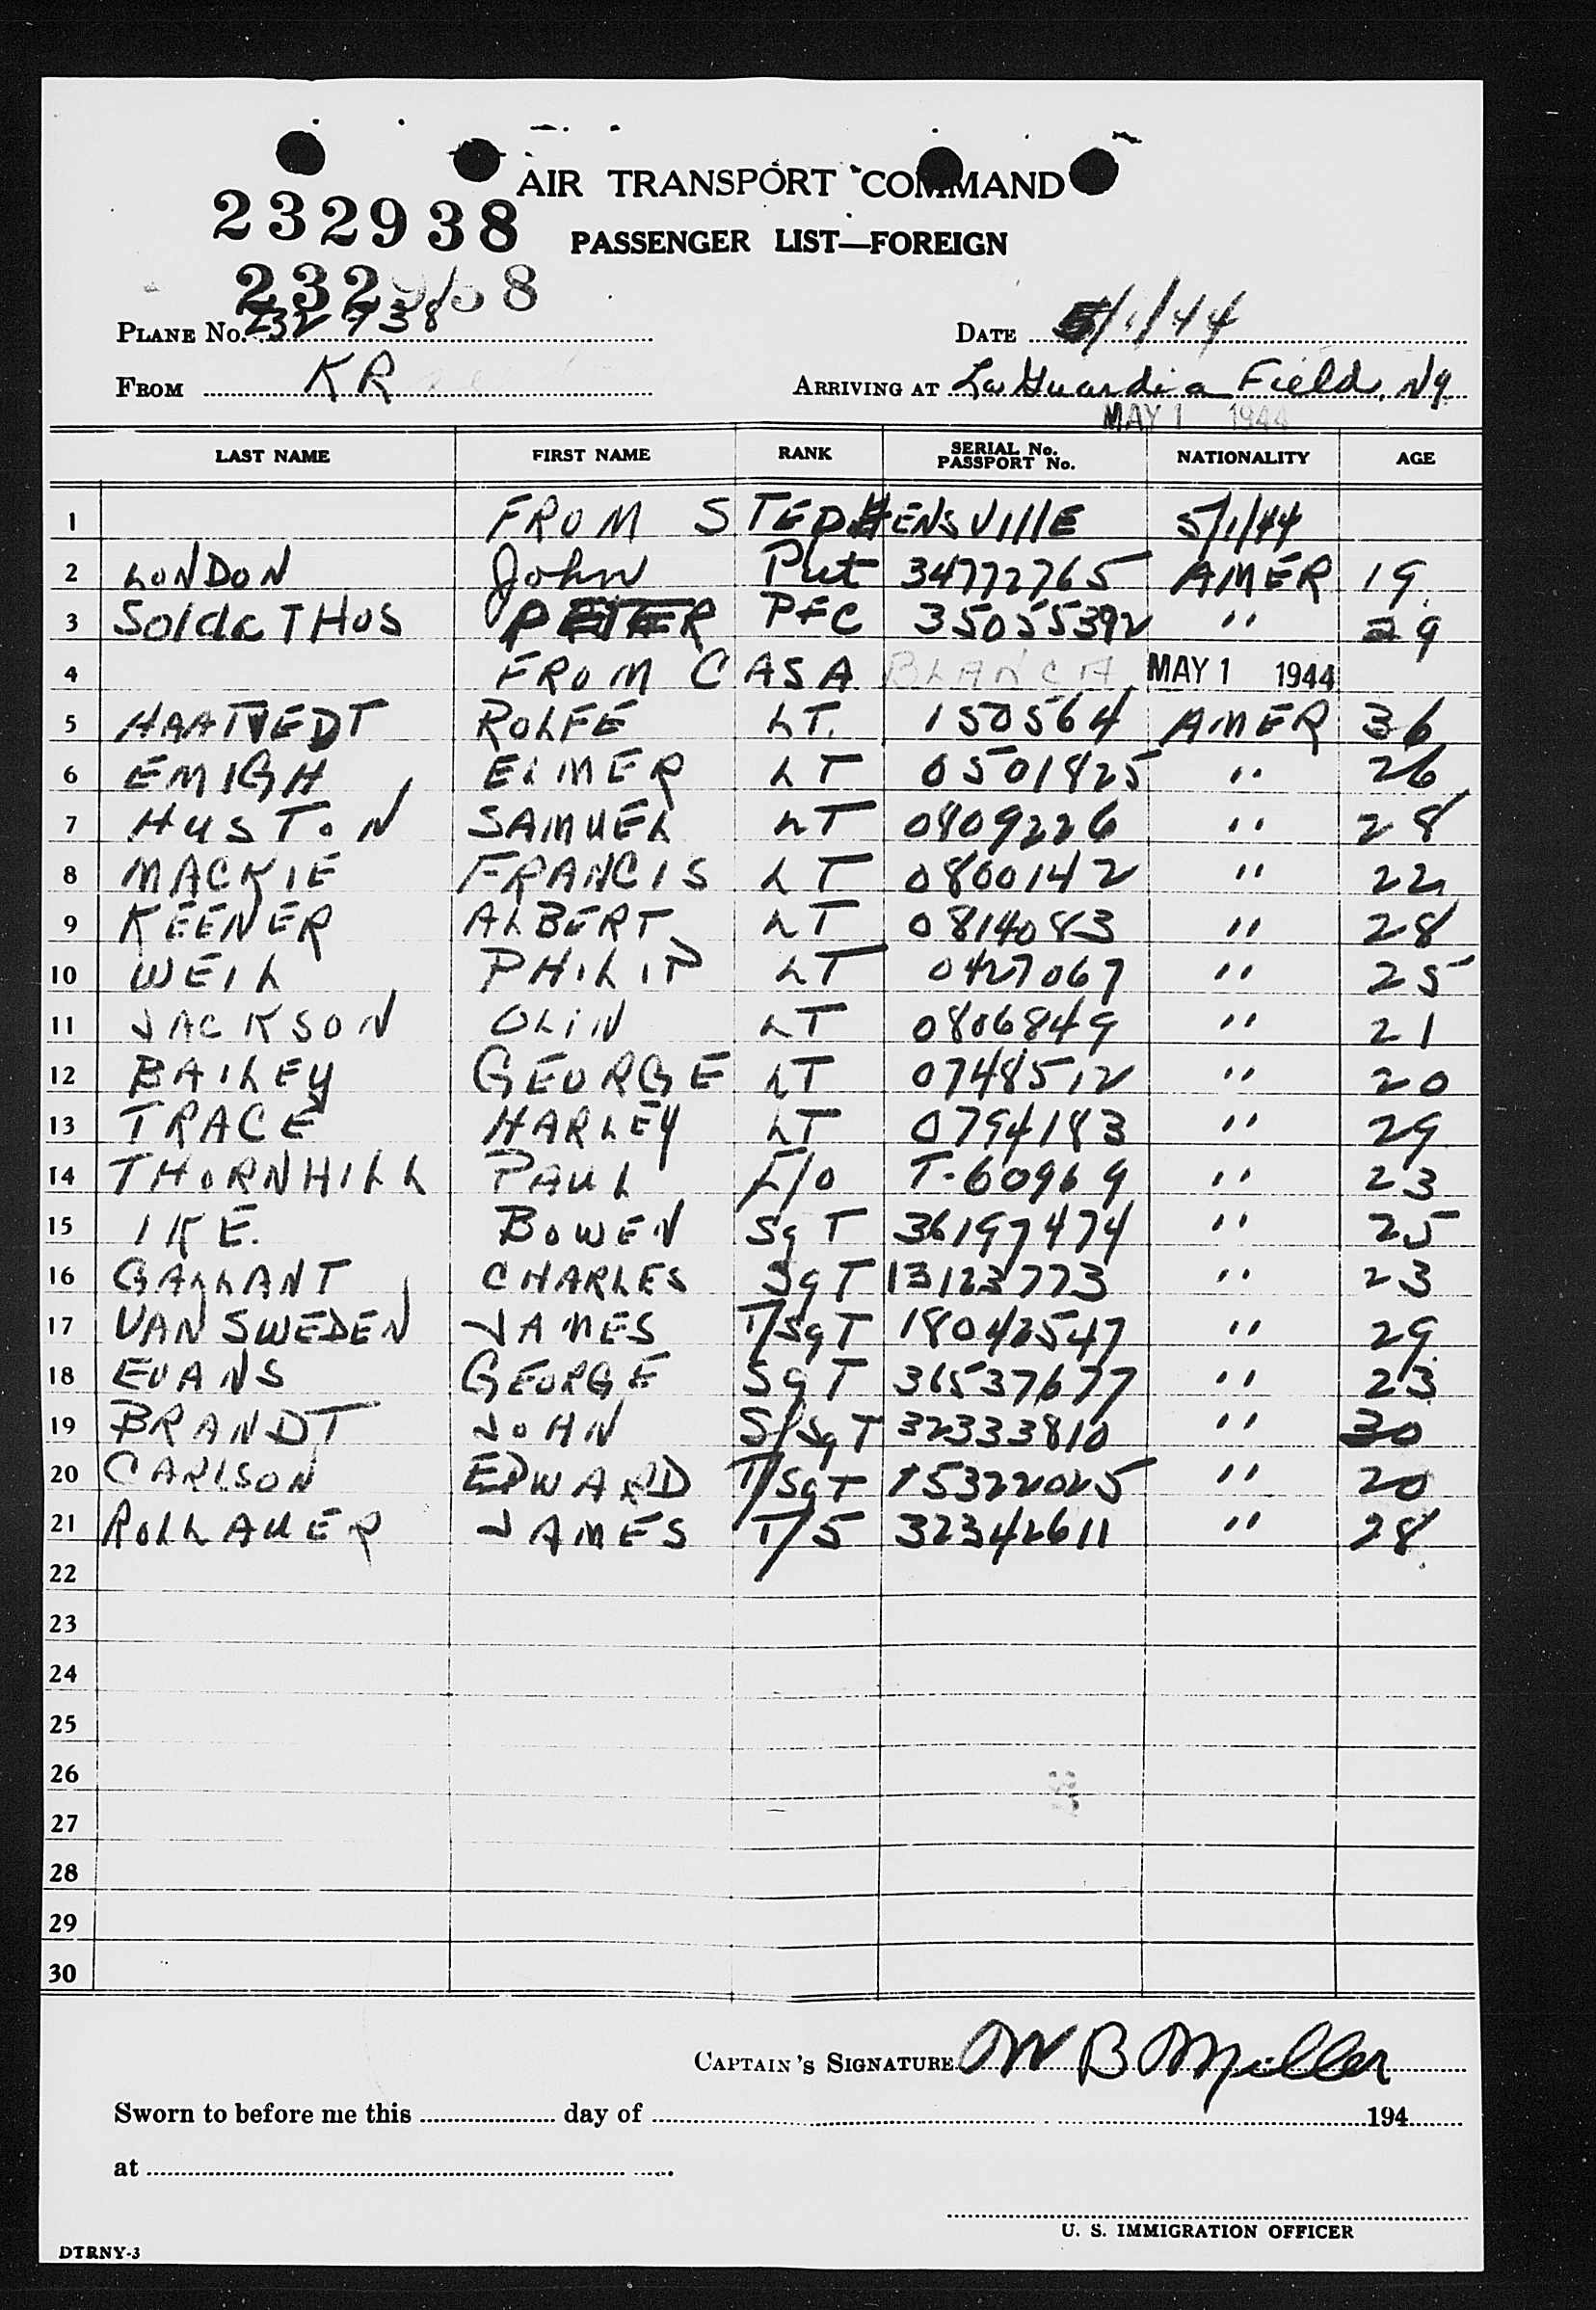 AIR TRANSPORT COMMAND
232938
PASSENGER LIST—FOREIGN
232938
PLANE No. 232938 DATE 5/1/44
FROM KR ARRIVING AT La Guardia Field, Ny
MAY 1 1944
LAST NAME FIRST NAME RANK SERIAL No. PASSPORT No. NATIONALITY AGE
1 FROM STEPHENSVIllE 5/1/44
2 LONDON John Pvt 34772765 AMER 19
3 SoldaTHos PETER PFC 35055392 " 29
4 FROM CASA BLANCA MAY 1 1944
5 HAATVEDT ROLFE LT. 150564 AMER 36
6 EMIGH ELMER LT 0501825 " 26
7 HUSTON SAMUEL LT 0809226 " 28
8 MACKIE FRANCIS LT 0800142 " 22
9 KEENER ALBERT LT 0814083 " 28
10 WEIL PHILIP LT 0427067 " 25
11 JACKSON OLIN LT 0806849 " 21
12 BAILEY GEORGE LT 0748512 " 20
13 TRACE HARLEY LT 0794183 " 29
14 THORNHILL PAUL F/O T-60969 " 23
15 IKE. BOWEN SgT 36197474 " 25
16 GALLANT CHARLES SgT 13123773 " 23
17 VAN SWEDEN JAMES T/SgT 18042547 " 29
18 EVANS GEORGE SgT 36537677 " 23
19 BRANDT JOHN S/SgT 32333810 " 30
20 CARLSON EDWARD T/SgT 15322025 " 20
21 ROLLAUER JAMES T/5 32342611 " 28
22
23
24
25
26
27
28
29
30
CAPTAIN'S SIGNATURE W B Miller
Sworn to before me this day of 194
at
U. S. IMMIGRATION OFFICER
DTRNY-3